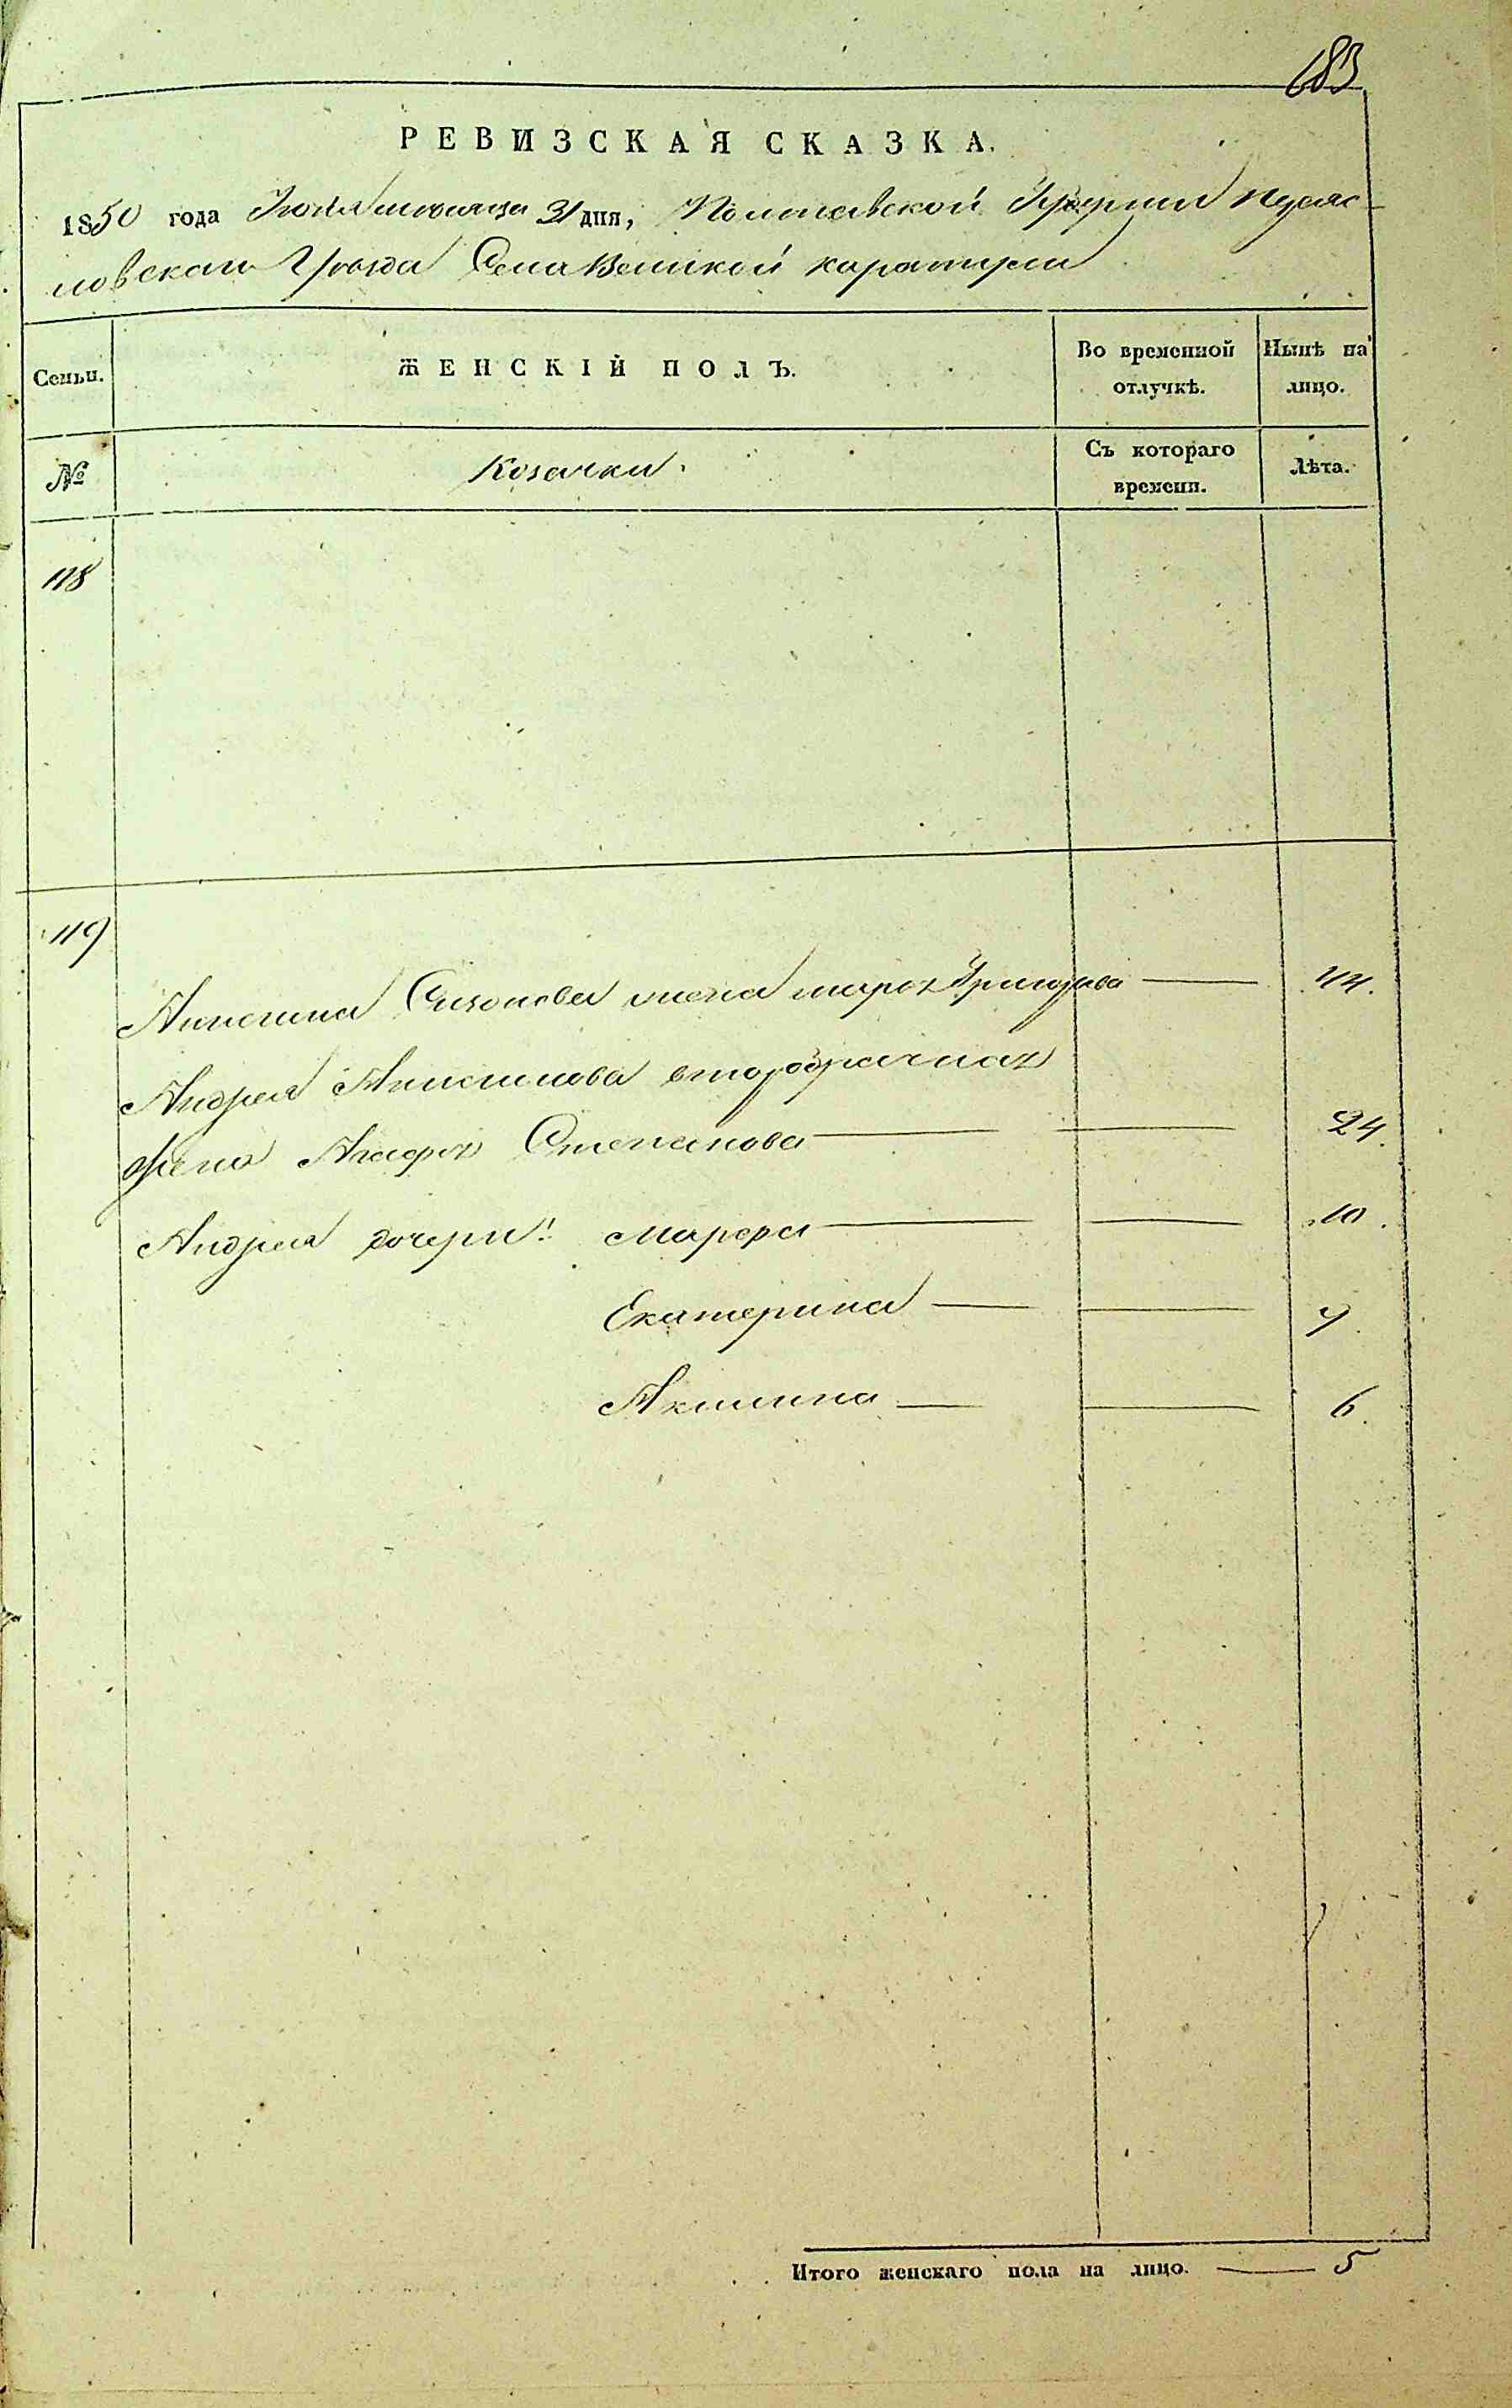 183
РЕВИЗСКАЯ СКАЗКА.
1850 года Июля месяца 31 дня, Полтавской Губернии Переяс-
ловскаго Уезда Села Великой каратули
Семьи.
ЖЕНСКІЙ ПОЛЪ.
Во временной отлучкѣ.
Нынѣ на лицо.
№
Козачки.
Съ котораго времени.
Лѣта.
118
119
Анисима Сизонова жена Григорьева 44.
Андрея Анисимова второбрачная
жена Агафия Степанова 24.
Андрея дочери: Марфа 10.
Екатерина
Акилина 6.
Итого женскаго пола на лицо. 5